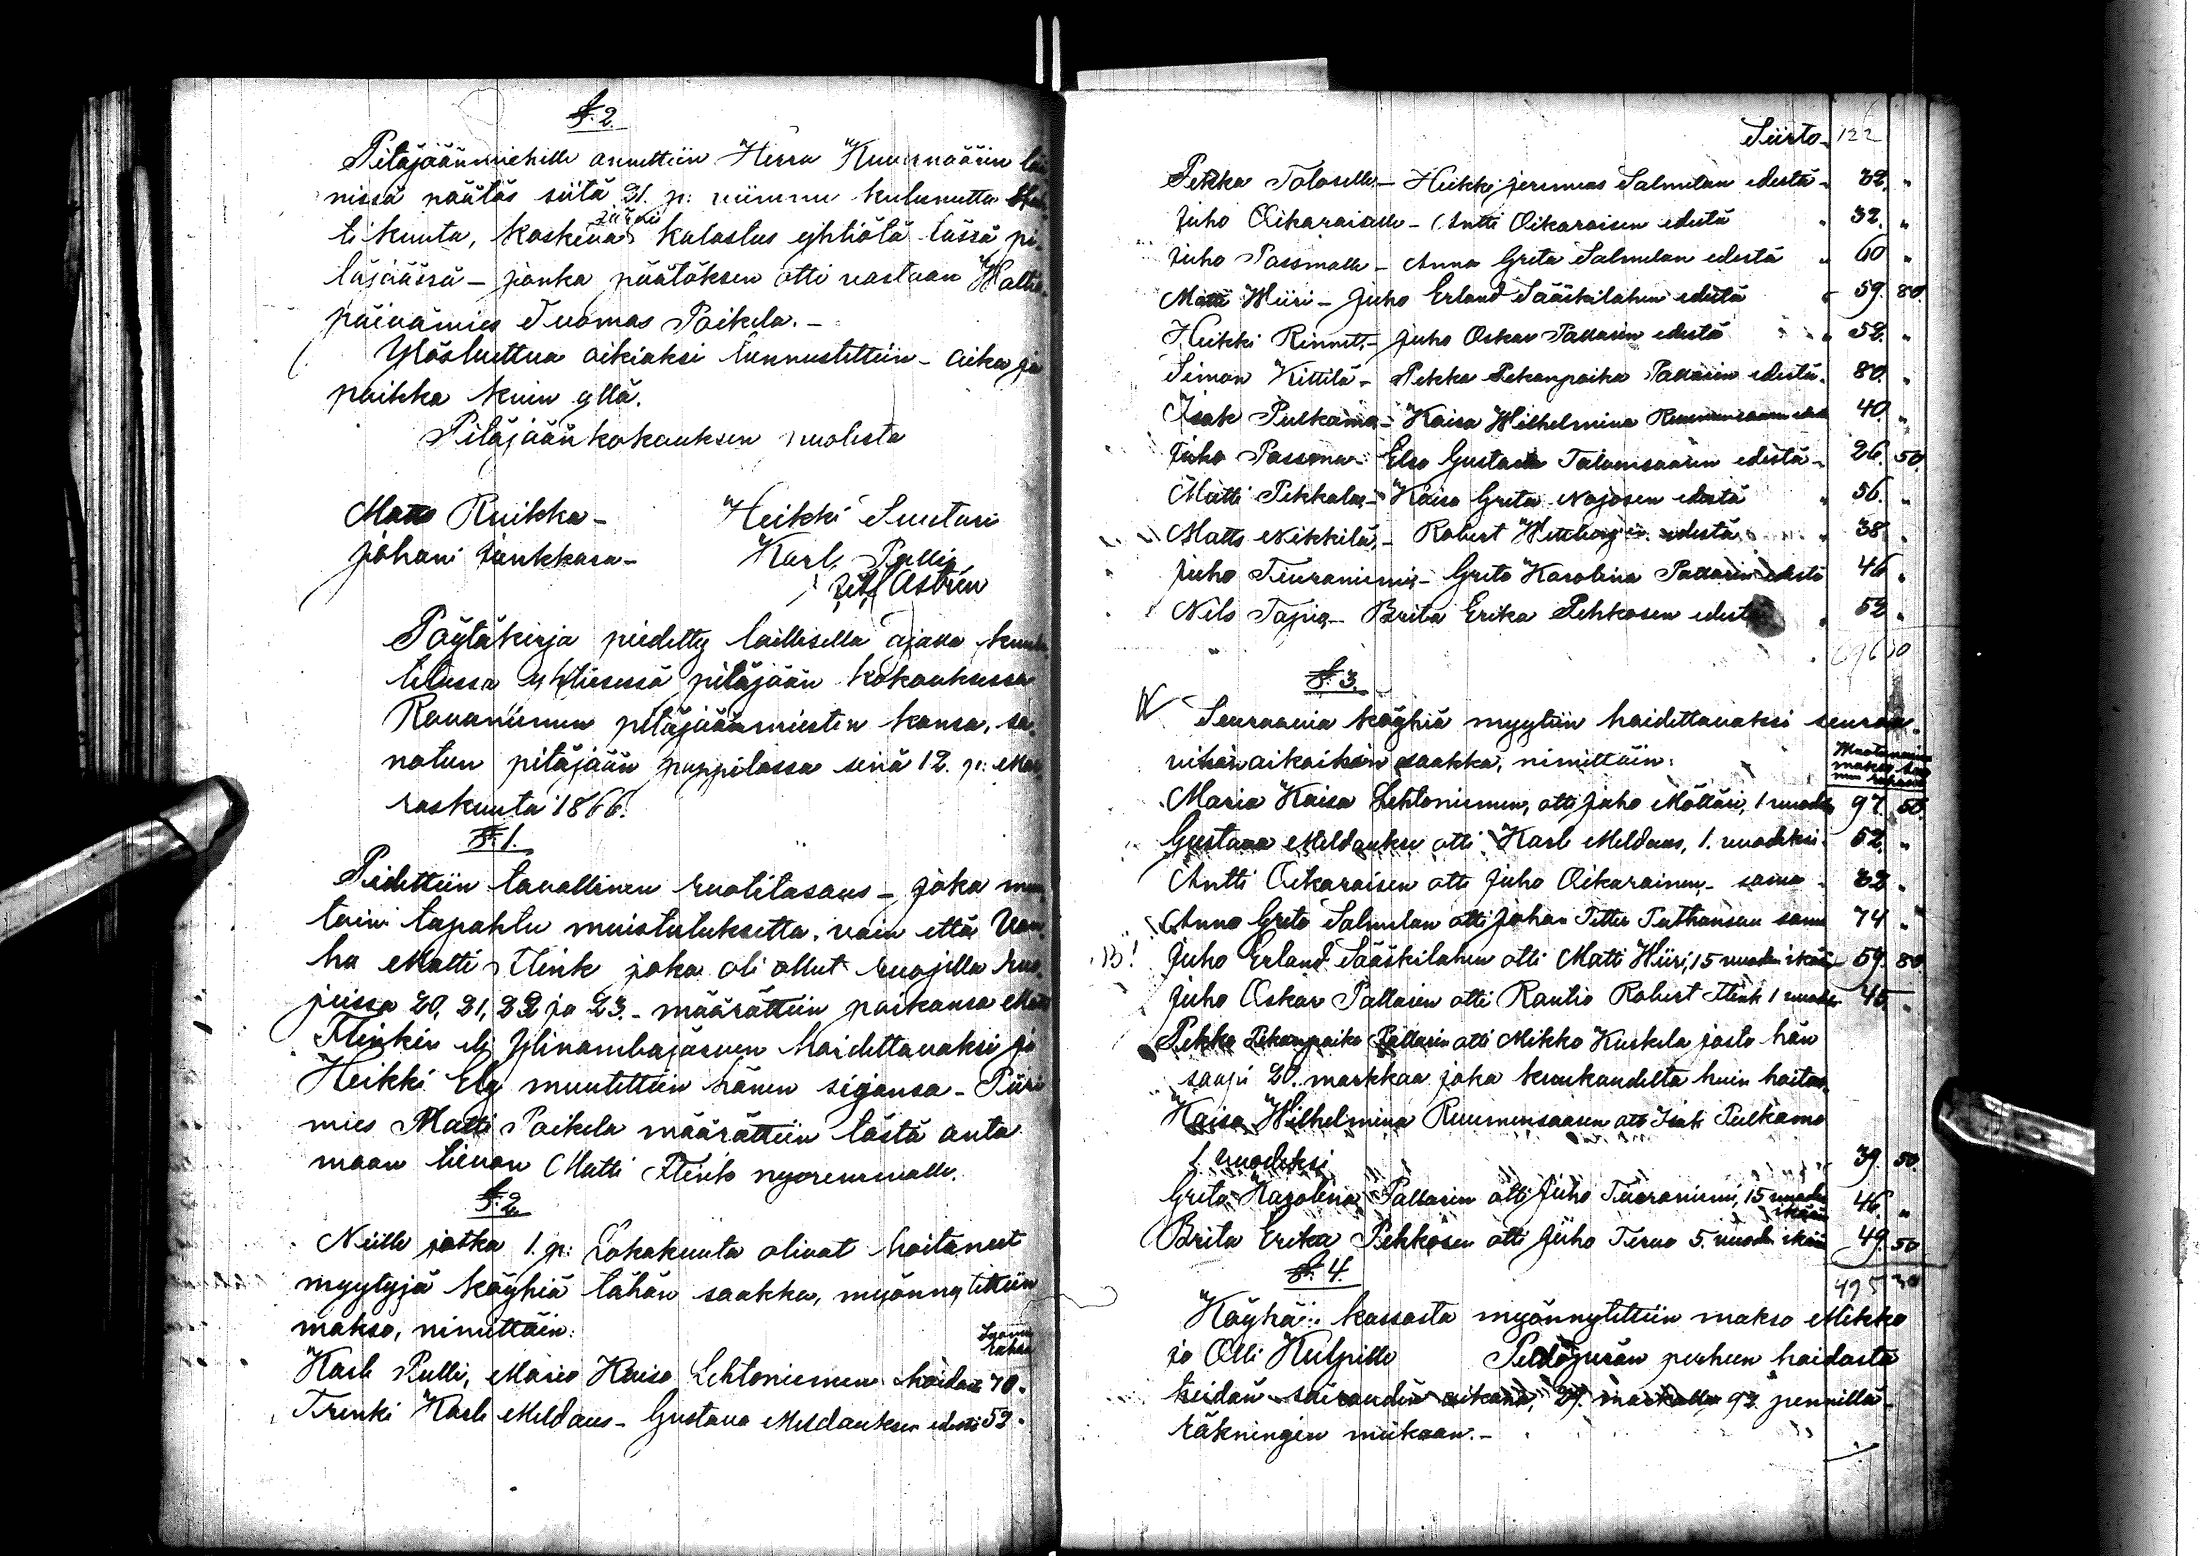 §.2.
Pitäjäänmiehille annettiin Herra Kuvernöörin
nissä päätös siitä 31. p: viimme kulunutta
ti kuuta, koskeva kalastus yhtiötä tässä pi-
täjäässä – jonka päätöksen otti vastaan Waltio-
päivämies Tuomas Poikela. –
Ylösluettua oikiaksi tunnustettiin – aika ja
paikka kuin yllä.
Pitäjäänkokouksen puolesta
Matts Ruikka –
Heikki Suutari
Johani Junkkara –
Karl Pulli
Pöytäkirja piedetty laillisella ajalla kuulu-
tetussa yhtiesessä pitäjään kokouksessa
Rovaniemen pitäjäänmiesten kansa, sa-
notun pitäjään pappilassa sinä 12. p: Mar-
raskuuta 1866.
§.1.
Pidettiin tavallinen ruotitasaus – joka muu-
toin tapahtu muistutuksetta, vain että Van-
ha Matti Flink joka oli ollut ruojilla ruo-
jeissa 20, 21, 22 ja 23. – määrättiin poikansa Matti
Flinkin eli Ylinampajärven hoidettavaksi ja
Heikki Ely muutettiin hänen sijansa – Piiri
mies Matti Poikela määrättiin tästä anta
maan tievon Matti Flink nuoremmalle.
§.2.
Niille jotka 1. p: Lokakuuta olivat hoitaneet
myytyjä köyhiä tähän saakka, myönnytettiin
makso, nimittäin:
Suomen
rahaa
Karl Pulli, Maria Kaisa Lehtoniemen hoidost 70.
Trenki Karl Meldaus – Gustava Meldauksen edestä 52.
Siirto – 122
Pekka Toloselle – Heikki Jeremias Salmelan edestä – 32. "
Juho Oikaraiselle – Antti Oikaraisen edestä " 32. "
Juho Passmalle – Anna Greta Salmelan edestä " 60 "
Matti Hiiri – Juho Erland Sääskilahen edestä " 59. 80
Heikki Rinnet – Juho Oskar Pallarin edestä " 52. "
Simon Kittilä – Pekka Pekanpoika Pallarin edestä. 80. "
Isak Pulkamo – Kaisa Wilhelmina Ruumensaaren edest 40. "
Juho Passoma – Elsa Gustava Talamsaaren edestä – 26. 50
Matti Pekkala – Kaisa Greta Nojosen edestä " 56. "
Matts Nikkilä – Robert edestä " 38. "
Juho Tiuraniemi – Greta Karolina Pallarin edestä 46 "
Nils Tapio – Brita Erika Pehkosen edestä " 52 "
§.3.
Seuraavia köyhiä myytiin hoidettavaksi seuraa-
vihin aikoihin saakka, nimittäin:
Maria Kaisa Lehtoniemen, otti Juho Möttäri, 1 vuodeksi 97. 50.
Gustava Meldauksen otti Karl Meldaus, 1. vuodeksi. 52. "
Antti Oikaraisen otti Juho Oikarainen – sama – 32 "
Anna Greta Salmelan otti Johan Petter sama 74 "
B! Juho Erland Sääskilahen otti Matti Hiiri, 15 vuoden ikään 59. 80
Juho Oskar Pallarin otti Rautio Robert Flink 1 vuodeksi 45. "
Pekka Pekanpoika Pallarin otti Mikko Kuskela josta hän
saapi 20. markkaa joka kuukaudelta kuin hoitaa.
Kaisa Wilhelmina Ruumensaaren otti Isak Pulkamo
1 vuodeksi 39. 50
Greta Karolina Pallarin otti Juho Tiuraniemi, 15 vuoden
ikään 46. "
Brita Erika Pehkosen otti Juho Tervo 5. vuoden ikään 49. 50
§.4.
495 30
Köyhäin kassasta myönnytettiin makso Mikko
ja Olli Kulpille Peltoperän perheen hoidosta
heidän sairauden aikana, 29. markalla 92 pennillä
räkningin mukaan. –